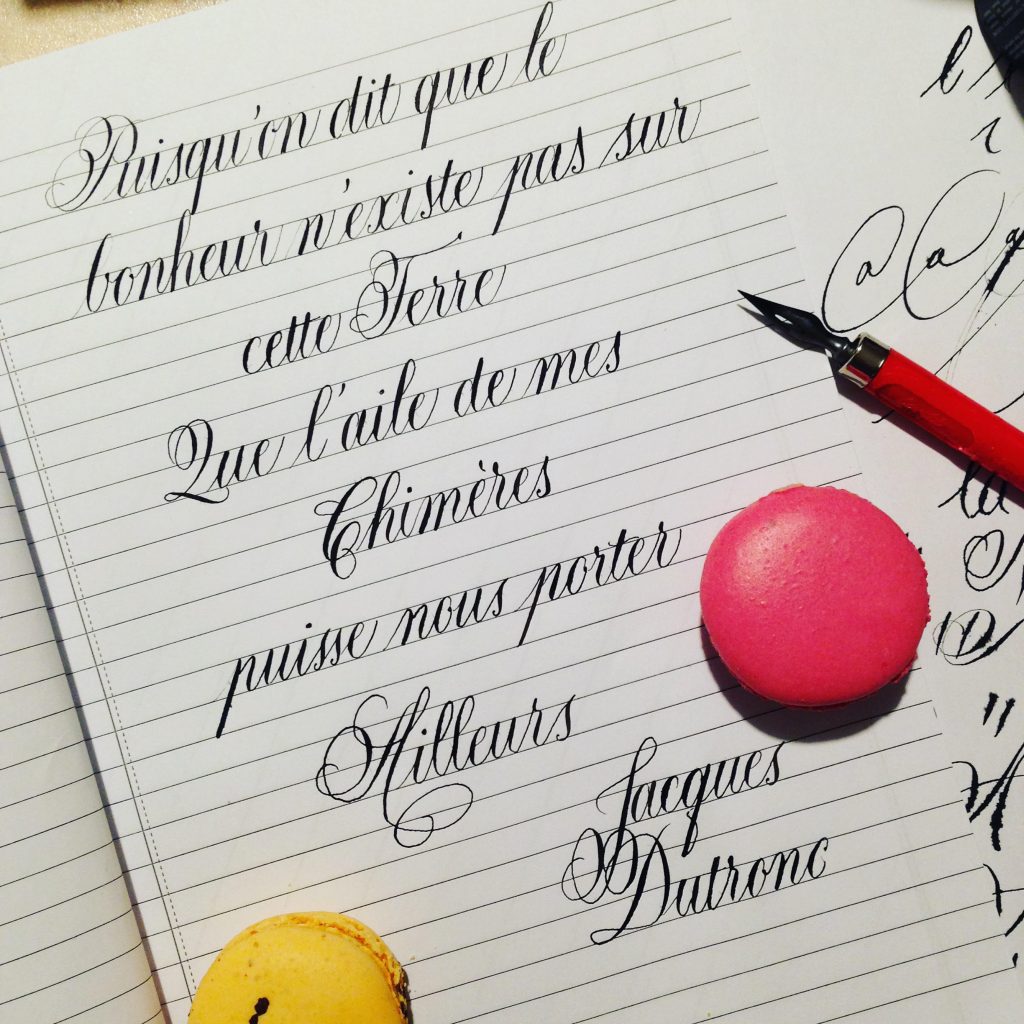 Puisqu'on dit que le
bonheur n'existe pas sur
cette Terre
Que l'aile de mes
Chimères
puisse nous porter
Ailleurs
Jacques
Dutronc